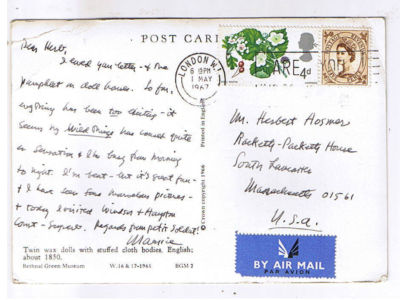 POST CARD
Dear Herb,
I loved your letter - & the
pamphlet on doll houses. So far,
everything has been too exciting - it
seems my Wild Things has caused quite
a sensation & I'm busy from morning
to night. I'm beat - but it's great fun -
& I have seen some marvelous pictures -
& today I visited Windsor & Hampton
Court - Superb. Regards from petit Soldat!
Maurice
Twin wax dolls with stuffed cloth bodies. English;
about 1850.
Bethnal Green Museum W.16 & 17-1965 BGM 2
Printed in England
© Crown copyright 1966
LONDON W.1
6 15PM
1 MAY
1967
4d
Mr. Herbert Hosmer
Racketty-Packetty House
South Lancaster
Massachusetts 01561
U.S.a.
BY AIR MAIL
PAR AVION